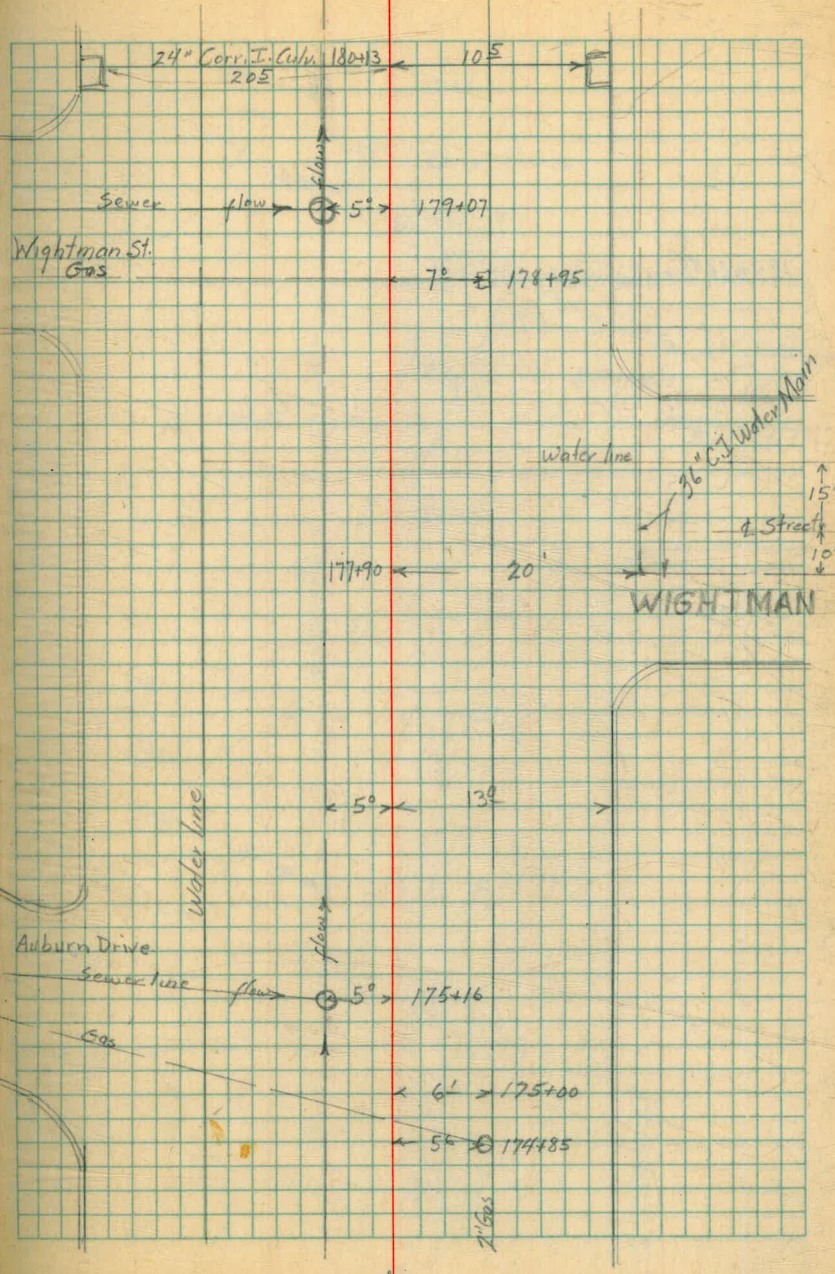 24" Corr. I. Culv. 180+13
20 5
10 5
flow
Sewer flow 5 0 179+07
Wightman St.
Gas
7 0 178+95
36" C.I. Water Main
Water line
15'
℄ Street
10'
177+90 20'
WIGHTMAN
5 0 13 0
Water line
flow
Auburn Drive
Sewer line flow 5 0 175+16
Gas
6 1 175+00
5 6 174+85
2" Gas